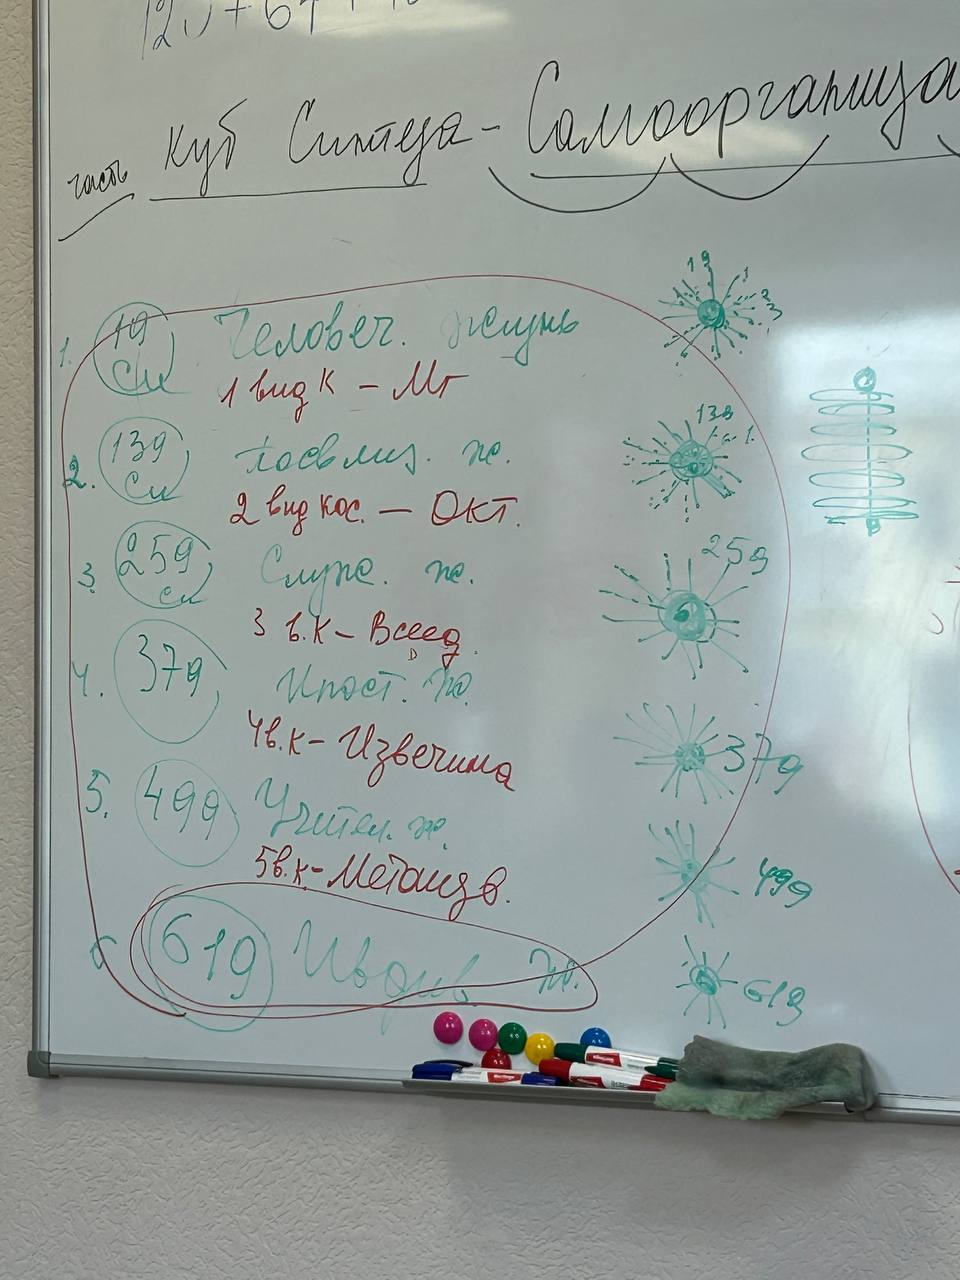 часть Куб Синтеза - Самоорганиза
19
1. 19 Си Человеч. жизнь
1 вид К - Мг
139
2. 139 Си Посвящ. ж.
2 вид кос. - Окт.
259
3. 259 Си Служ. ж.
3 в.К - Всеед.
4. 379 Ипост. ж. 379
4в.К - Извечина
5. 499 Учител. ж. 499
5в.К - Метаизв.
6 619 Ивдив ж. 619